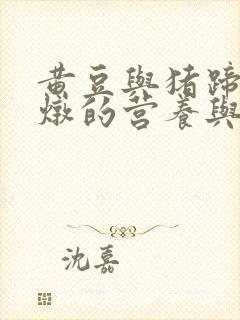 黄豆與猪蹄
燉的营養與
沈嘉